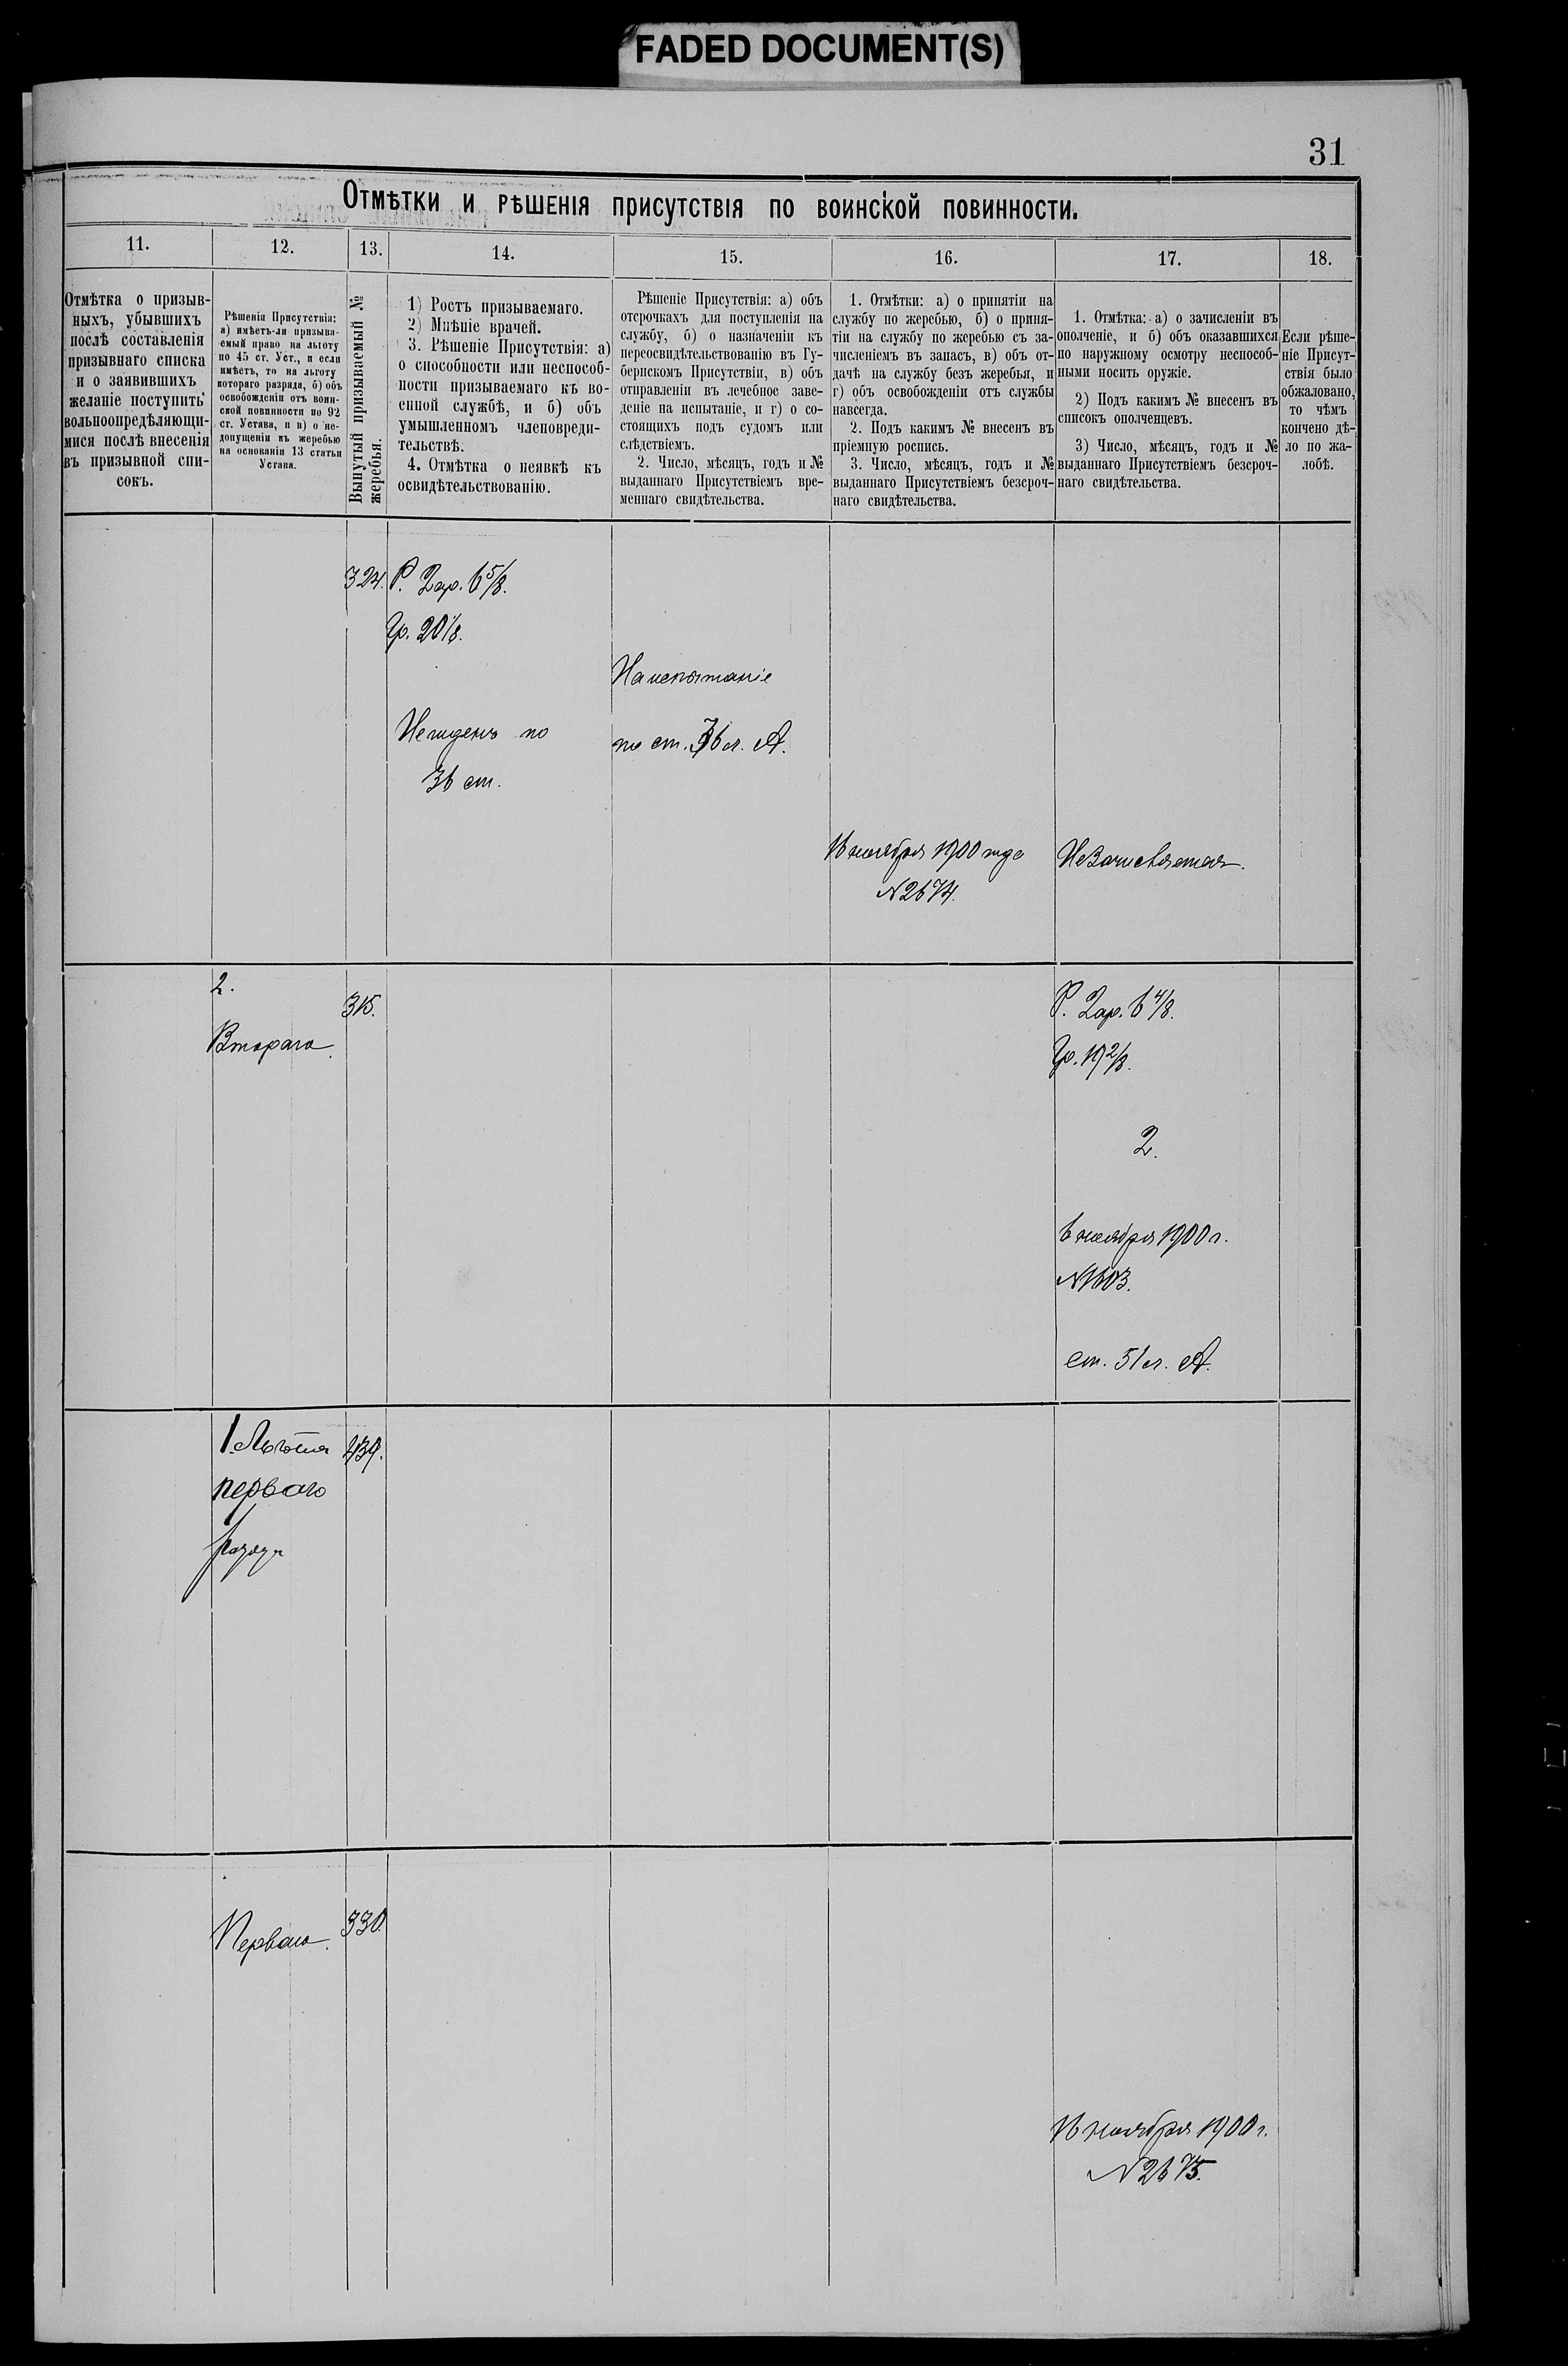 FADED DOCUMENT(S)
31
Отмѣтки и рѣшенія присутствія по воинской повинности.
11.
12.
13.
14.
15.
16.
17.
18.
Отмѣтка о призыв-
ныхъ, убывшихъ
послѣ составленія
призывнаго списка
и о заявившихъ
желаніе поступить
вольноопредѣляющи-
мися послѣ внесенія
въ призывной спи-
сокъ.
Рѣшенія Присутствія:
а) имѣетъ-ли призыва-
емый право на льготу
по 45 ст. Уст., и если
имѣетъ, то на льготу
котораго разряда, б) объ
освобожденіи отъ воин-
ской повинности по 92
ст. Устава, и в) о не-
допущеніи къ жеребью
на основаніи 13 статьи
Устава.
Вынутый призываемый №
жеребья.
1) Ростъ призываемаго.
2) Мнѣніе врачей.
3. Рѣшеніе Присутствія: а)
о способности или неспособ-
ности призываемаго къ во-
енной службѣ, и б) объ
умышленномъ членовреди-
тельствѣ.
4. Отмѣтка о неявкѣ къ
освидѣтельствованію.
Рѣшеніе Присутствія: а) объ
отсрочкахъ для поступленія на
службу, б) о назначеніи къ
переосвидѣтельствованію въ Гу-
бернскомъ Присутствіи, в) объ
отправленіи въ лечебное заве-
деніе на испытаніе, и г) о со-
стоящихъ подъ судомъ или
слѣдствіемъ.
2. Число, мѣсяцъ, годъ и №
выданнаго Присутствіемъ вре-
меннаго свидѣтельства.
1. Отмѣтки: а) о принятіи на
службу по жеребью, б) о приня-
тіи на службу по жеребью съ за-
численіемъ въ запасъ, в) объ от-
дачѣ на службу безъ жеребья, и
г) объ освобожденіи отъ службы
навсегда.
2. Подъ какимъ № внесенъ въ
пріемную роспись.
3. Число, мѣсяцъ, годъ и №
выданнаго Присутствіемъ безсроч-
наго свидѣтельства.
1. Отмѣтка: а) о зачисленіи въ
ополченіе, и б) объ оказавшихся
по наружному осмотру неспособ-
ными носить оружіе.
2) Подъ какимъ № внесенъ въ
списокъ ополченцевъ.
3) Число, мѣсяцъ, годъ и №
выданнаго Присутствіемъ безсроч-
наго свидѣтельства.
Если рѣше-
ніе Присут-
ствія было
обжаловано,
то чѣмъ
кончено дѣ-
ло по жа-
лобѣ.
324.
Р. 2 ар. 6 5/8.
Гр. 20 1/8.
Негоденъ по
36 ст.
На испытаніе
по ст. 36 л. А.
16 ноября 1900 года
N 2674.
Не Зачисляется.
2.
Втораго.
315.
Р. 2 ар. 6 4/8.
Гр. 19 2/8.
2.
6 ноября 1900 г.
N 1603.
ст. 51 л. А.
1. Льгота
перваго
разряда
439.
Перваго.
330.
16 ноября 1900 г.
N 2675.